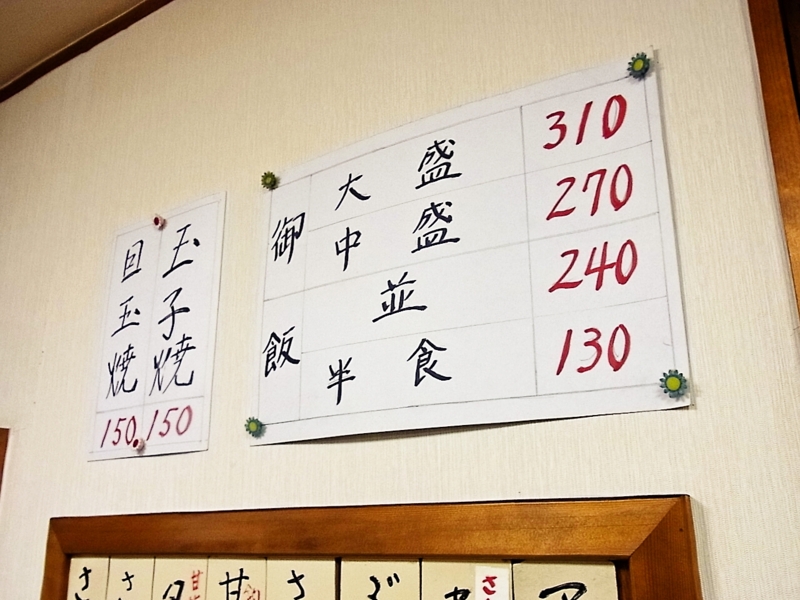 玉子焼 150
目玉焼 150
御飯
大盛 310
中盛 270
並 240
半食 130